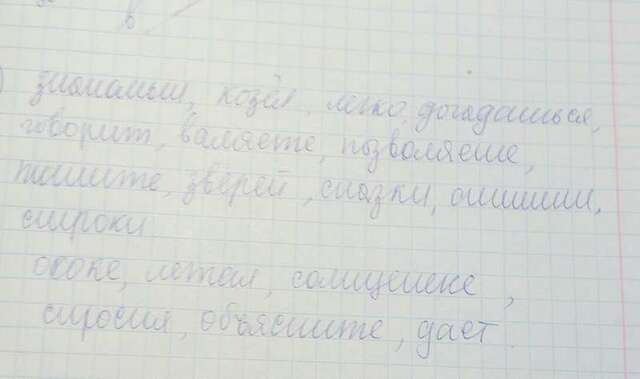 в
знакомым, козёл, легко, догадаться,
говорит, валяете, позволяете,
пишите, зверей, сказки,
строки
окоќе, летал, солнцепеке,
спросил, объясните, дает.